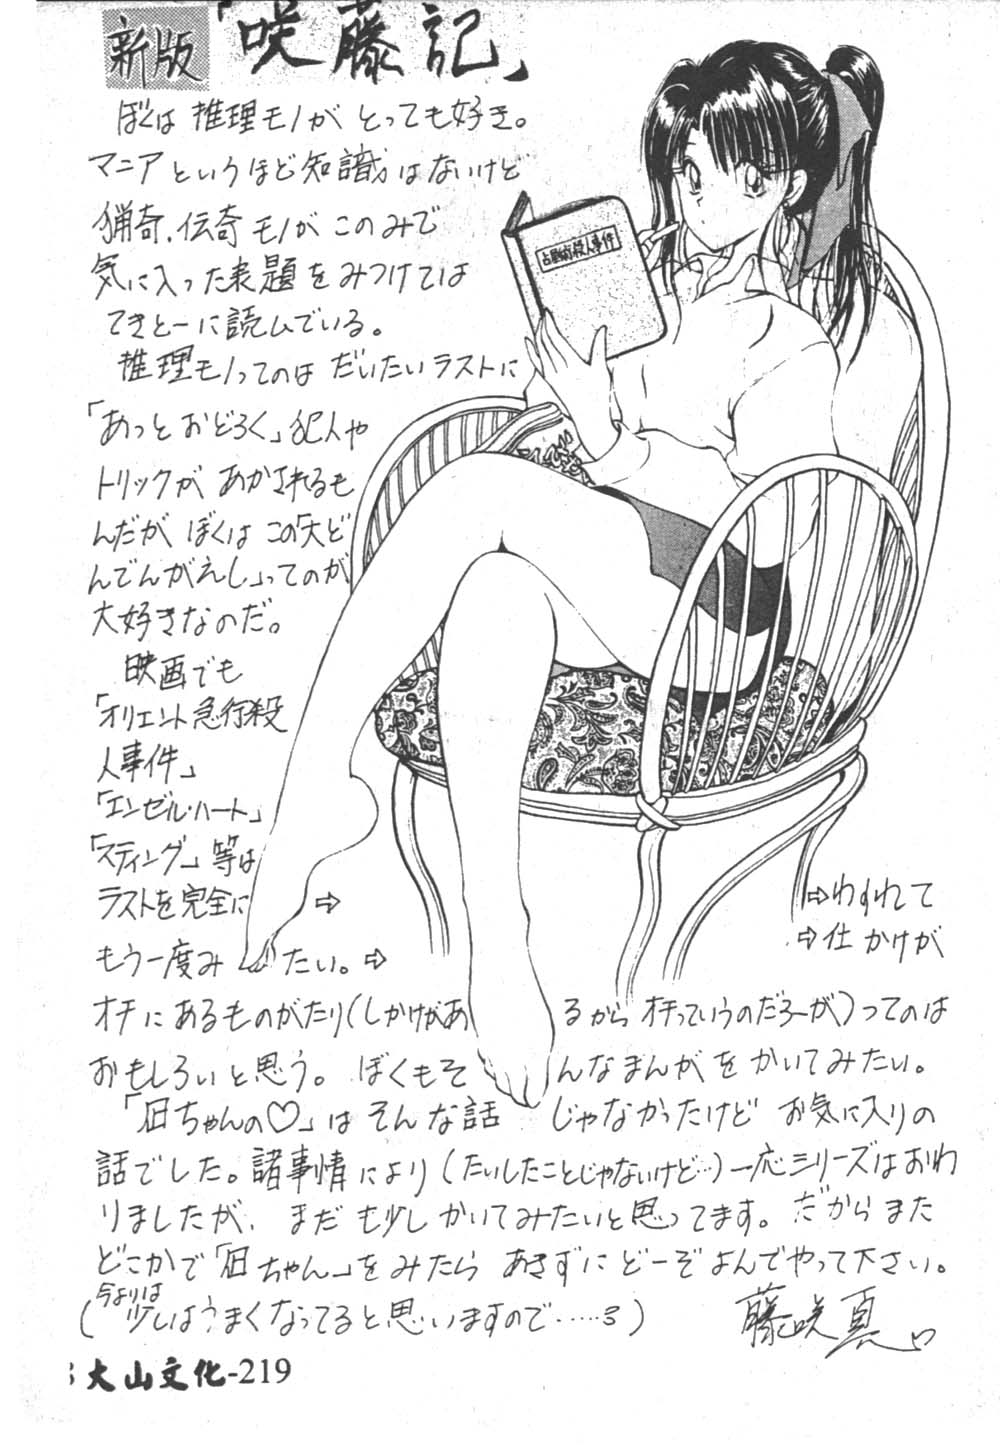 新版「咲藤記」
ぼくは 推理モノが とっても好き。
マニア というほど 知識は ないけど
猟奇、伝奇モノが このみで
気に入った表題をみつけては
てきとーに読んでいる。
占星術殺人事件
推理モノってのは だいたいラストに
「あっとおどろく」犯人や
トリックが あかされるも
んだが ぼくは この「大ど
んでんがえし」ってのが
大好きなのだ。
映画でも
「オリエント急行殺
人事件」
「エンゼル・ハート」
「スティング」等は
ラストを完全に ⇨ ⇨わすれて
もう一度みたい。⇨ ⇨仕かけが
オチにあるものがたり(しかけがあるから オチっていうのだろーが)ってのは
おもしろいと思う。ぼくもそんなまんがをかいてみたい。
ちゃんの♡」は そんな話じゃなかったけど お気に入りの
話でした。諸事情により(たいしたことじゃないけど…)一応シリーズはおわ
りましたが、まだも少しかいてみたいと思ってます。だからまた
どこかで「ちゃん」をみたら あきずに どーぞよんでやって下さい。
(今よりは少しはうまくなってると思いますので……ろ)
藤咲真
大山文化-219